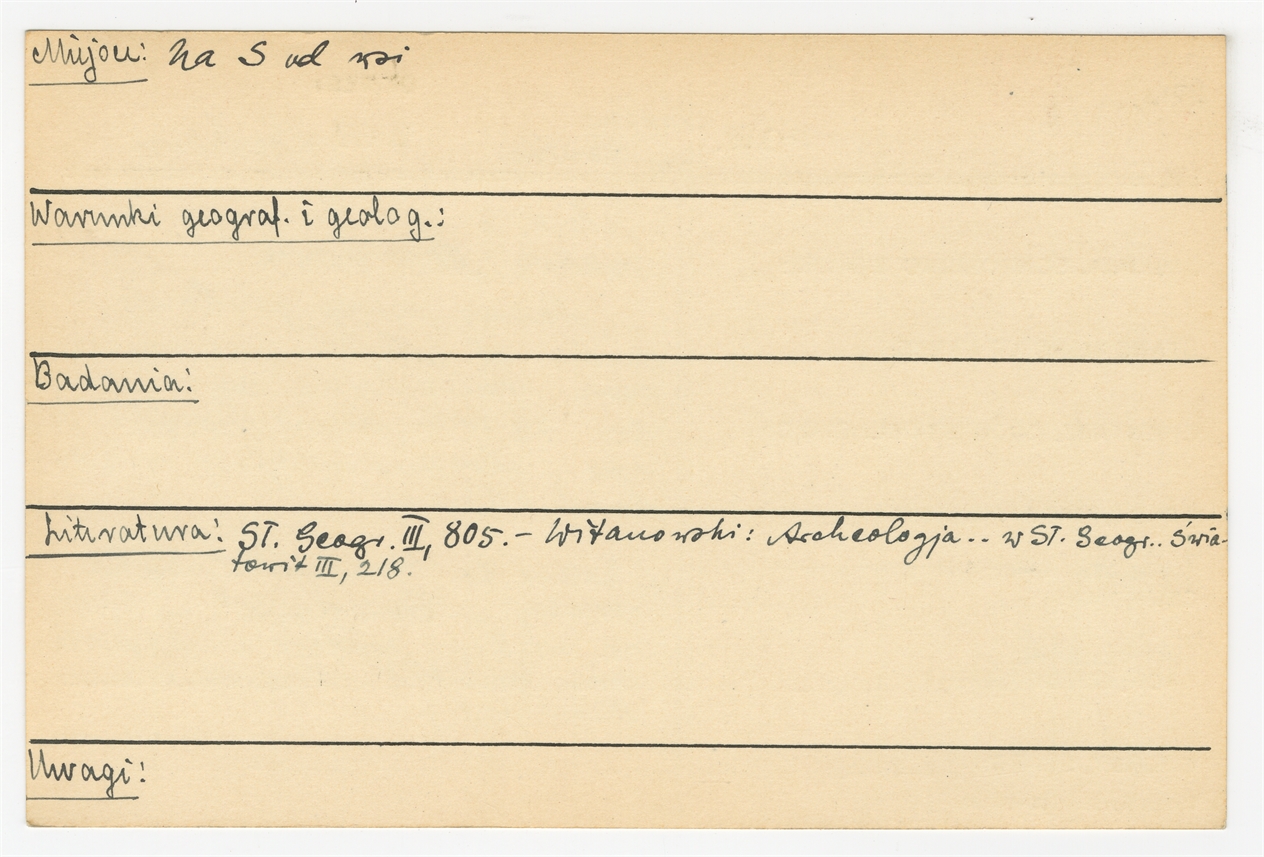 Miejsc: Na S od wsi
Warunki geograf. i geolog.:
Badania:
Literatura: Sł. Geogr. III, 805. – Witanowski: Archeologja .. w Sł. Geogr.. Świa-
towit III, 218.
Uwagi: